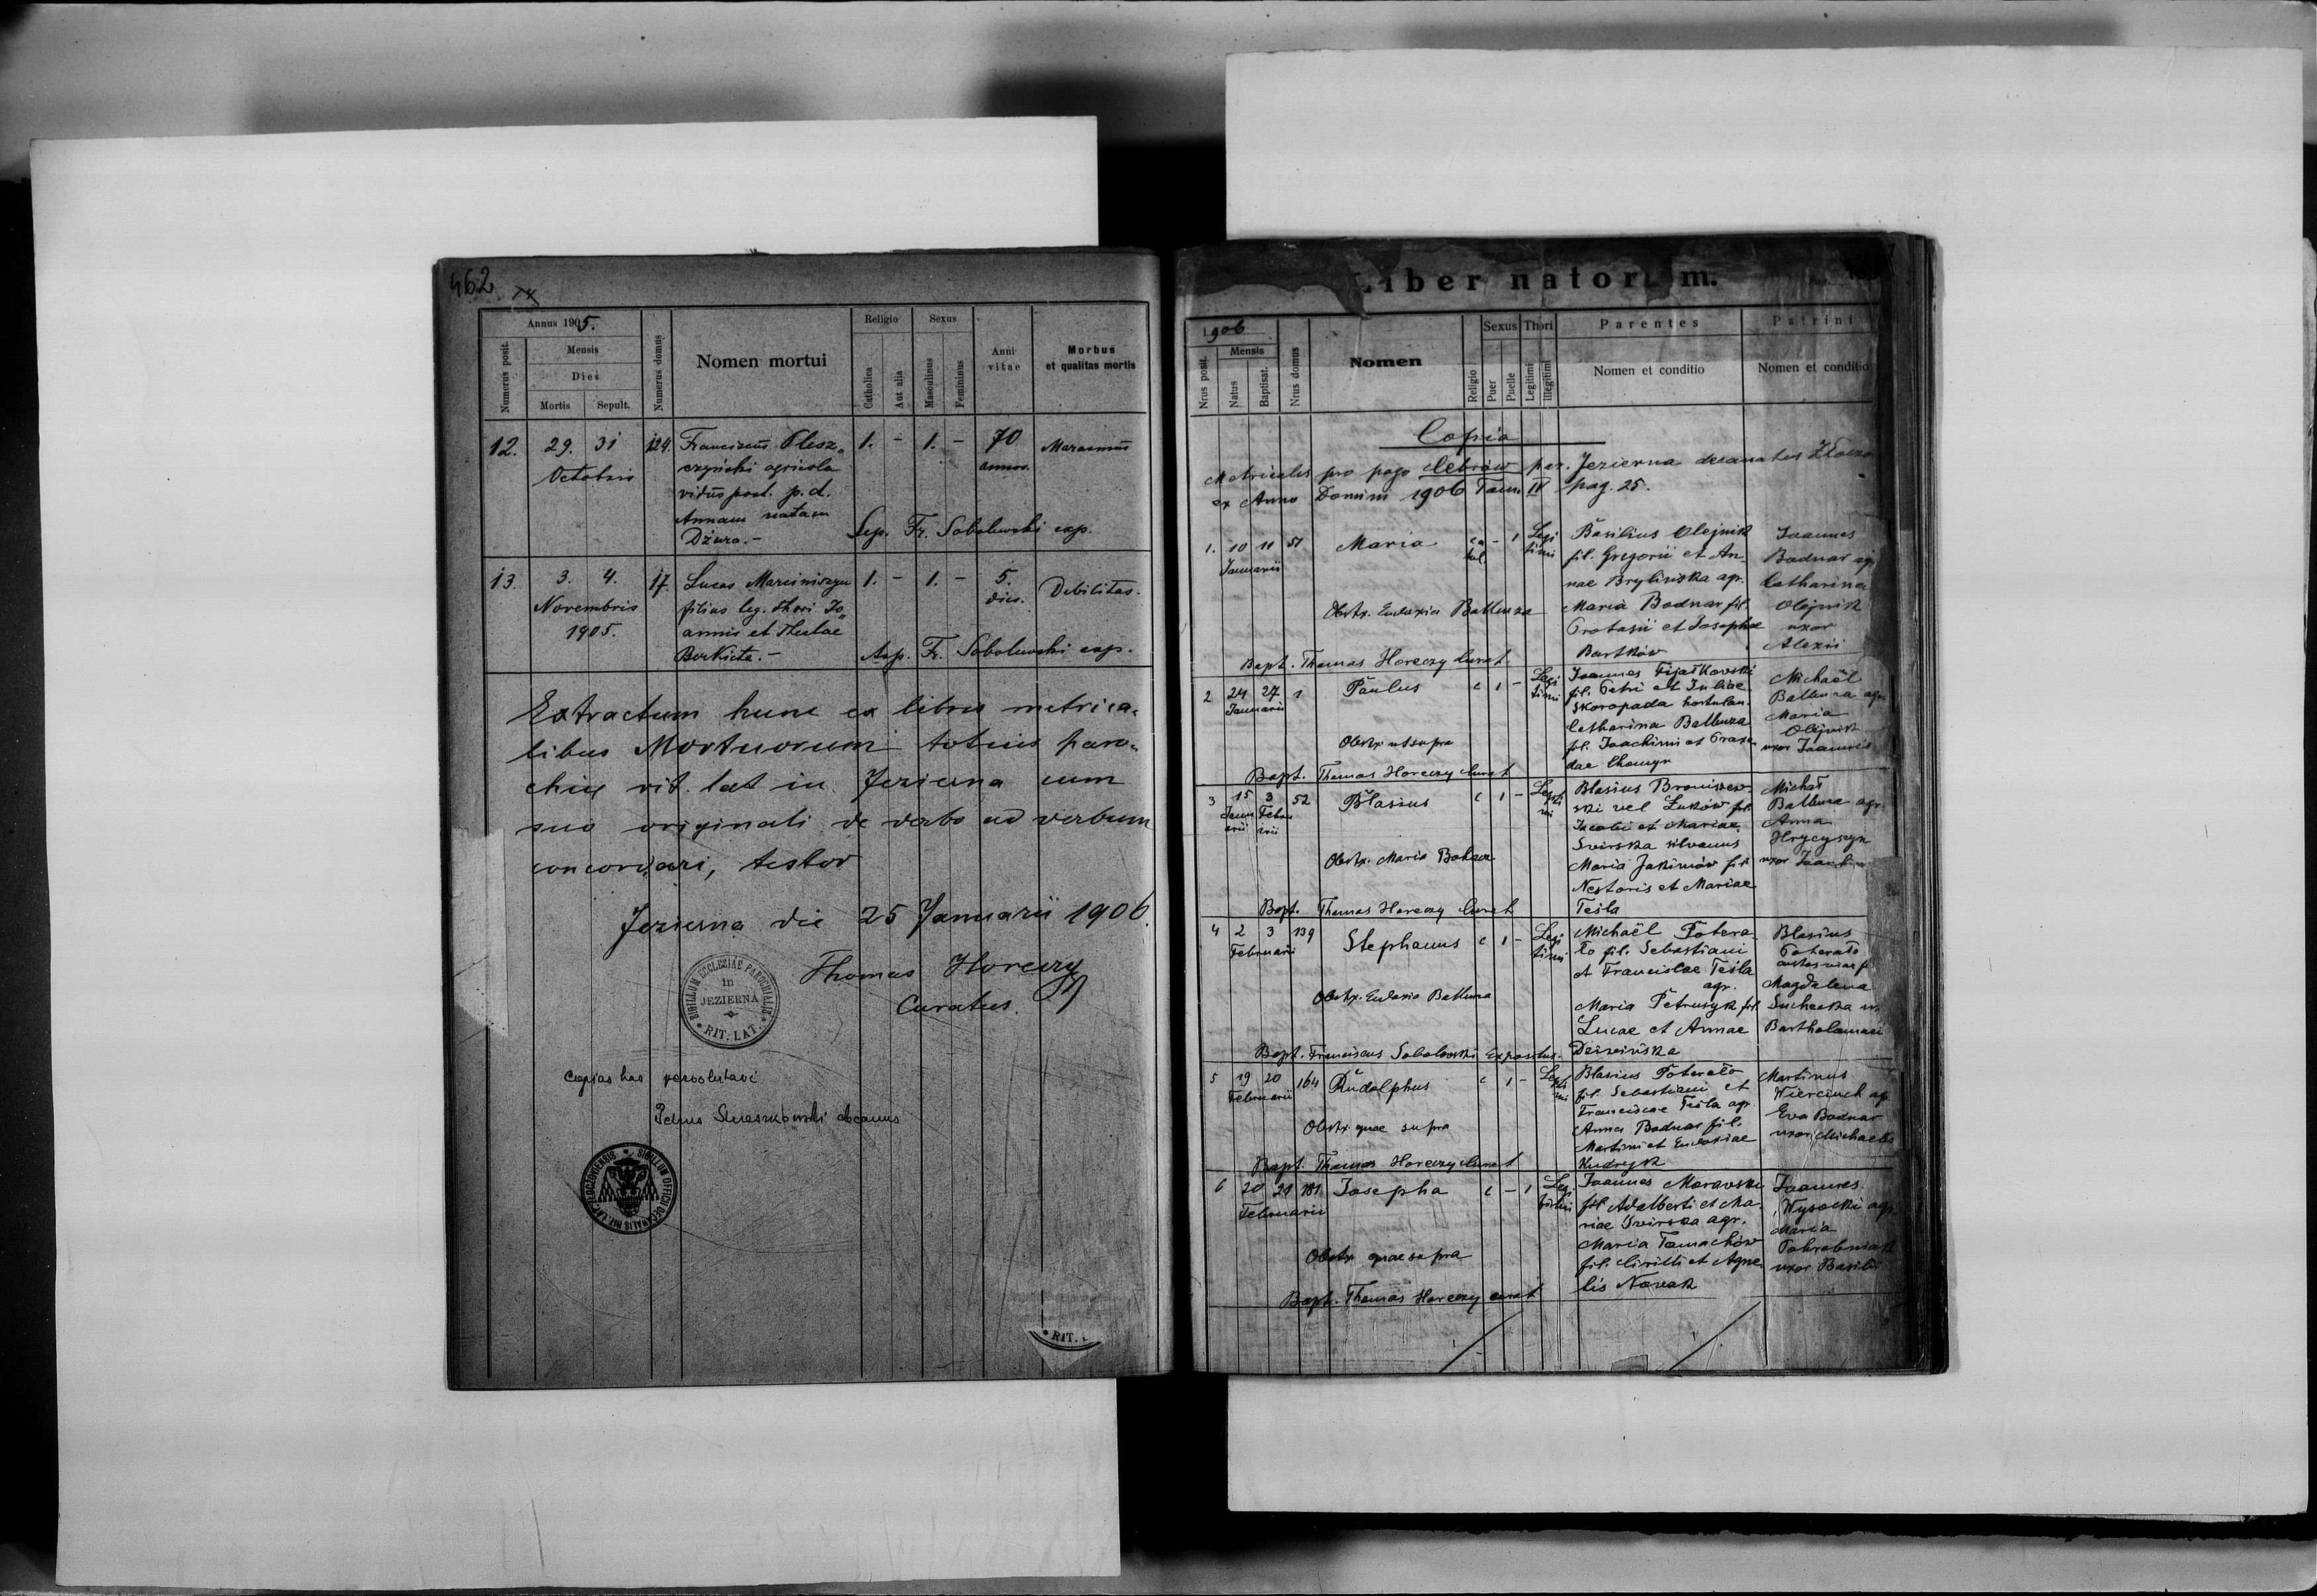 462
Annus 1905.
Numerus posit.
Mensis
Dies
Mortis Sepult.
Numerus domus
Nomen mortui
Religio
Catholica
Aut alia
Sexus
Masculinus
Femininus
Anni vitae
Morbus
et qualitas mortis
12. 29. 31 124. Franciscus Plesz„ 1. - 1. - 70 Marasmus
Octobris czyński agricola annos.
viduus post. p.d.
Annam natam
Dziura.- Sep. Fr. Sobolewski exp.
13. 3. 4. 17. Lucas Marciniszyn 1. - 1. - 5. Debilitas.
Novembris filius leg. thori Jo„ dies.
1905. annis et Theclae
- Fr. Sobolewski exp.
Extractum hunc ex libris metrica„
libus Mortuorum totius paro„
chiae rit. lat in Jezierna cum
suo originali de verbo ad verbum
concordari, testor
Jezierna die 25 Januarii 1906.
Thomas Horeczy
Curatus.
SIGILLUM ECCLESIAE PAROCHIALIS
in
JEZIERNA
* RIT. LAT. *
Copias has
Petrus decanus
SIGILLUM OFFICII DECANALIS RIT. LAT.
* RIT.
Liber natorum.
1906
Nrus posit.
Mensis
Natus
Baptisat.
Nrus domus
Nomen
Religio
Sexus
Puer
Puelle
Thori
Legitimi
Illegitimi
Parentes
Nomen et conditio
Patrini
Nomen et conditio
Copia
Metricales pro pago Cebrów par. Jezierna decanatus
ex Anno Domini 1906 Tom IV pag. 25.
1. 10 11 51 Maria ca - 1 Legi Basilius Olejnik Joannes
Januarii tol. timi fil. Gregorii et An- Bodnar ag
nae Brylińska agr. Catharina
Obstr. Eudoxia Batiuza Maria Bodnar fil. Olejnik
Protasii et Josephae uxor
Bartków Alexii
Bapt. Thomas Horeczy Curat
2 24 27 1 Paulus c 1 - Legi Joannes Fijałkowski Michaël
Januarii timi fil. Petri et Juliae agr
Skoropada hortulan. Maria
Catharina Batiuza Olejnik
Obstr. ut supra fil. Joachimi et Praxe- uxor Joannis
dae Chomyn
Bapt. Thomas Horeczy Curat
3 15 3 52 Blasius c 1 - Legiti Blasius Broniszew- Michał
Janu Febru mi ski vel Żuków fil. agr.
arii arii Jacobi et Mariae Anna
Svirska silvanus Hrycyszyn
Obstr. Maria Maria Jakimów fil uxor
Nestoris et Mariae
Bapt. Thomas Horeczy Curat Tesla
4 2 3 139 Stephanus c 1 - Legi Michaël Potera- Blasius
Februarii timi ło fil. Sebastiani Poterało
et Franciscae Tesla
agr. Magdalena
Obstr. Eudoxia Maria Petruszyk fil. Suchecka
Lucae et Annae Bartholamaei
Bapt. Franciscus Sobolewski Expositus.
5 19 20 164 Rudolphus c 1 - Legiti Blasius Poterało Martinus
Februarii mi fil. Sebastiani et Wierciuch agr.
Franciscae Tesla agr. Eva Bodnar
Obstr. quae supra Anna Bodnar fil. uxor Michaelis
Martini et Eudoxiae
Bapt. Thomas Horeczy Curat Kudryk
6 20 21 181 Josepha c - 1 Legi Joannes Morawski Joannes
Februarii timi fil. Adalberti et Ma- Wysocki agr.
riae Svirska agr. Maria
Obstr. quae supra Maria Tomachów
fil. Cirilli et Agne- uxor Basilii
Bapt. Thomas Horeczy curat tis Nowak